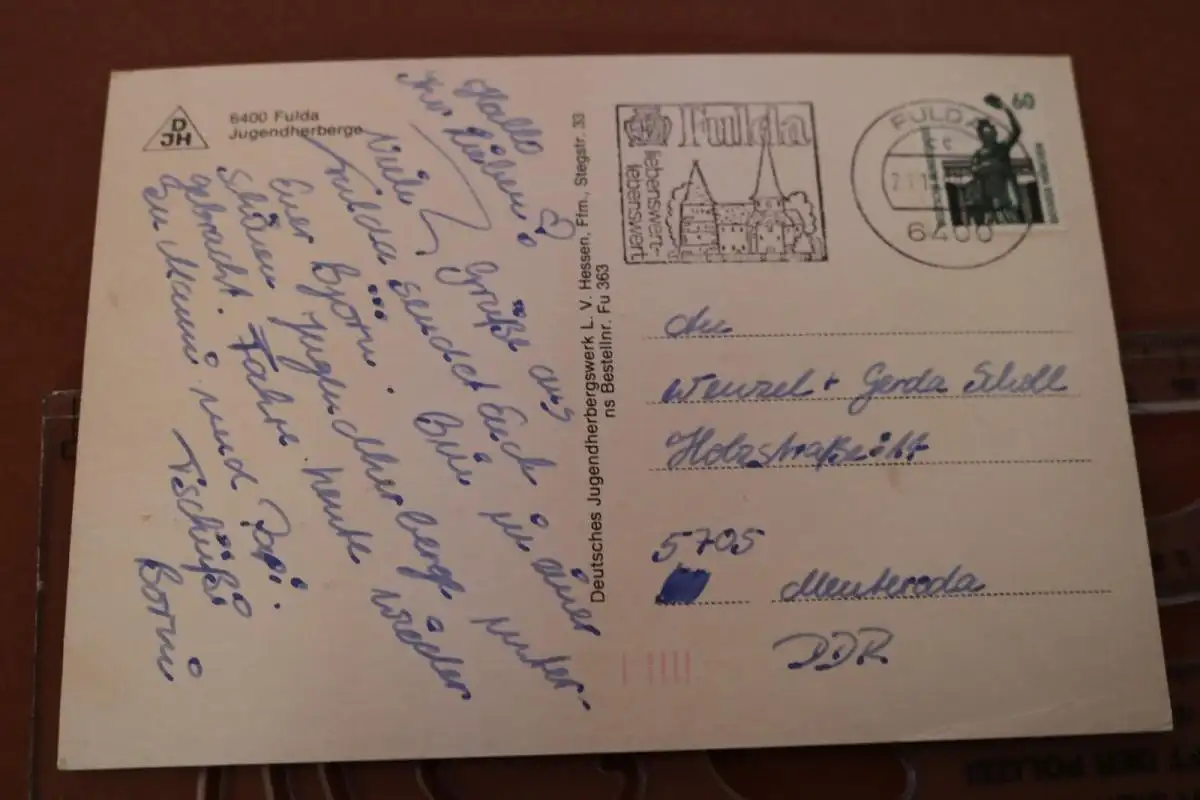 DJH
6400 Fulda
Jugendherberge
Hallo
Ihr Lieben!
Viele Grüße aus
Fulda sendet Euch
Euer Björn. Bin in einer
schönen Jugendherberge unter-
gebracht. Fahre heute wieder
zu Mami und Papi.
Tschüß
Borni
Deutsches Jugendherbergswerk L. V. Hessen, Ffm., Stegstr. 33
ns Bestellnr. Fu 363
Fulda
lebenswert-
lebenswert
FULDA
c
6400
60
An
Wenzel + Gerda Scholl
Holzstraße
5705
Menteroda
DDR